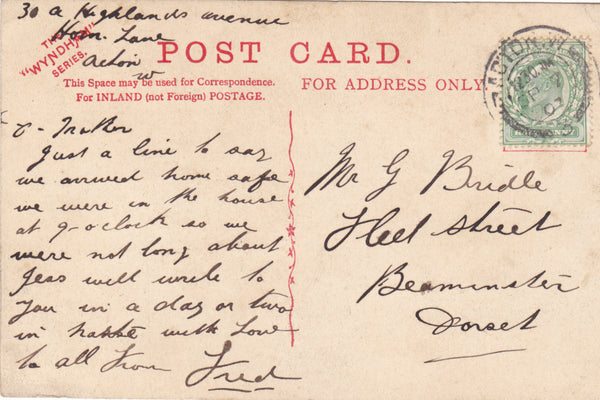 30 a Highlands avenue
Horn Lane
Acton
W
THE
"WYNDHAM"
SERIES.
POST CARD.
This Space may be used for Correspondence.
For INLAND (not Foreign) POSTAGE.
FOR ADDRESS ONLY
ACTON. W.
07
HALFPENNY
Just a line to say
we arrived home safe
we were in the house
at 9-o-clock so we
were not long about
Jess will write to
you in a day or two
in haste with Love
to all From Fred
Mr G Bridle
Fleet Street
Beaminster
Dorset